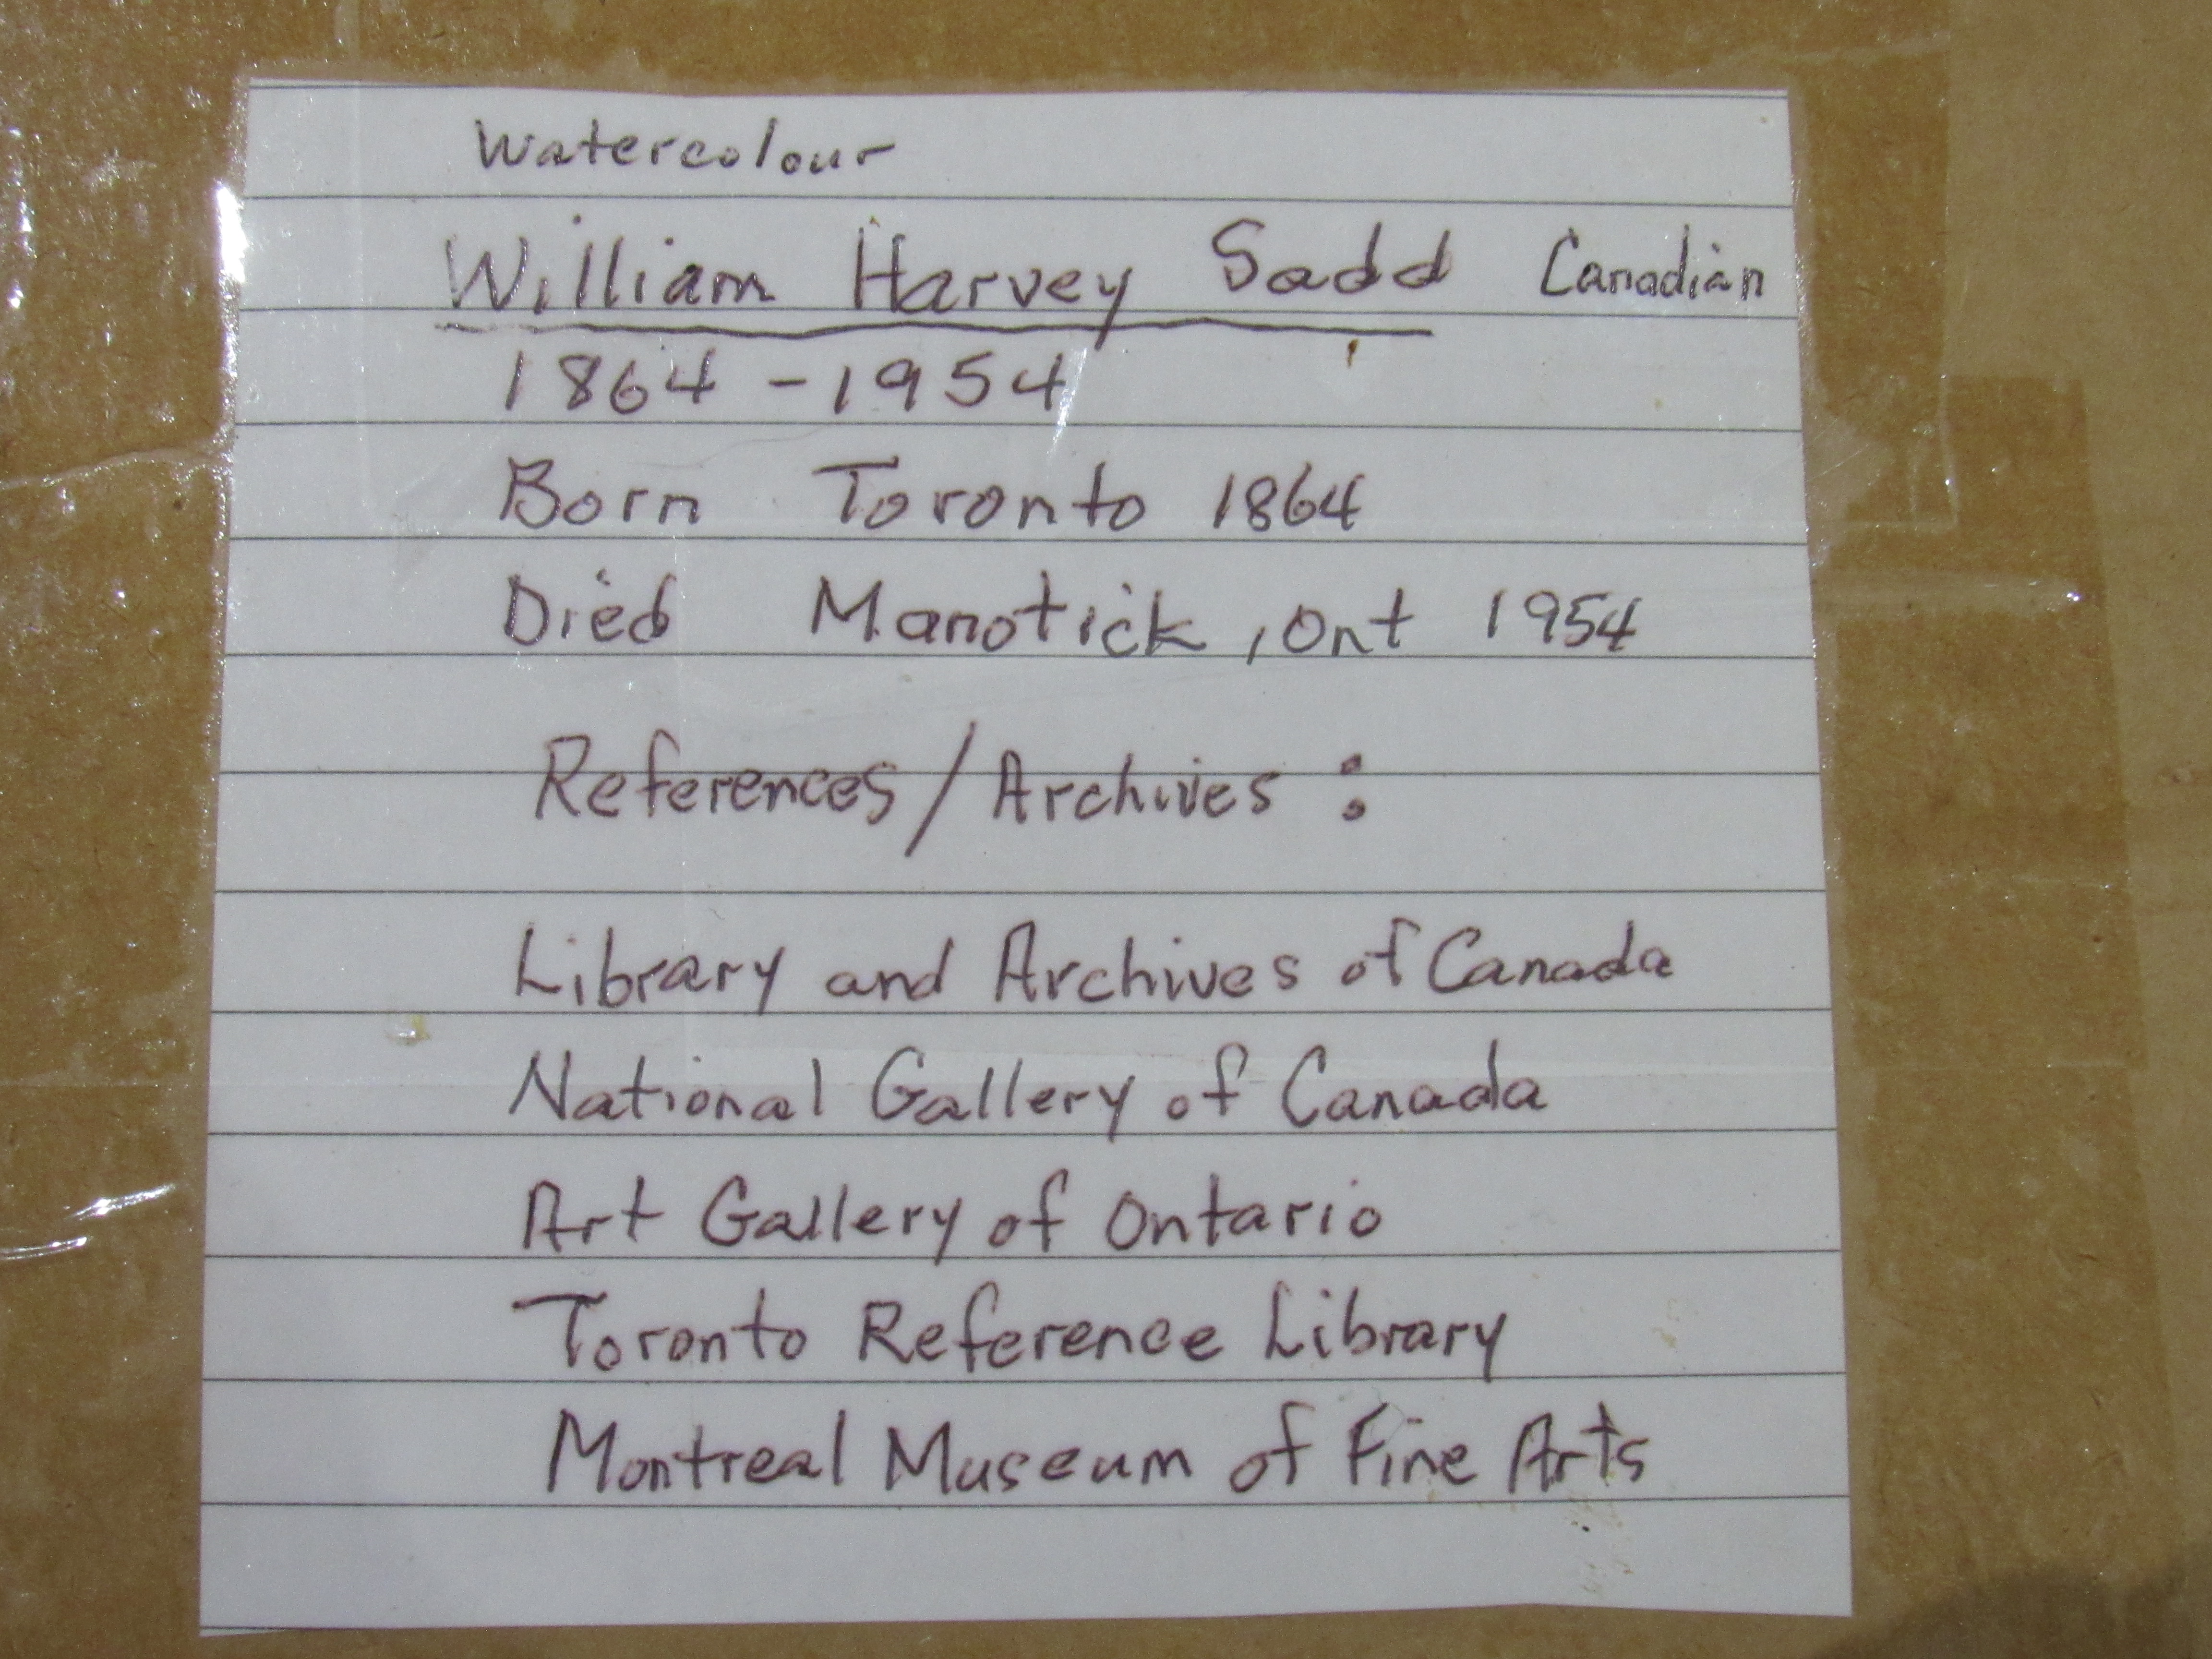 Watercolour
William Harvey Sadd Canadian
1864 - 1954
Born Toronto 1864
Died Manotick, Ont 1954
References/Archives :
Library and Archives of Canada
National Gallery of Canada
Art Gallery of Ontario
Toronto Reference Library
Montreal Museum of Fine Arts